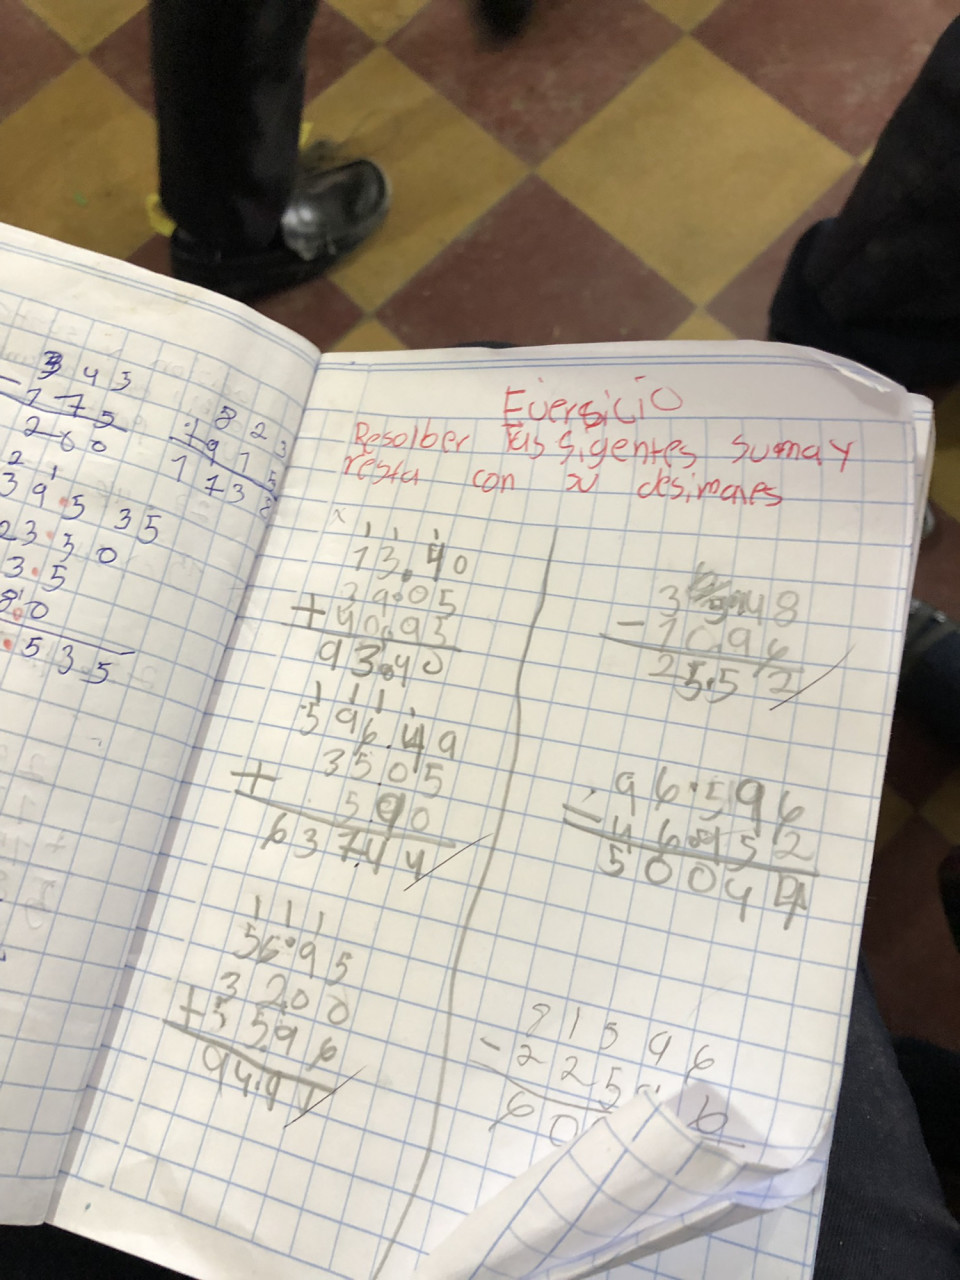 3 4 5
- 1 7 5
2 6 0
8 2 3
+ 9 1 5
1 7 3 8
2 1
3 9.5 3 5
2 3.5 0
3.5
8.0
.5 3 5
Eversicio
Resolber las sigentes suma y
resta con su desimanes
1 1 1
1 3.4 0
3 9.0 5
+ 4 0.9 5
9 3.4 0
1 1 1
5 9 6.4 9
3 5 0 5
+ 5 9 0
6 3 7.4 4
1 1 1
5 6.9 5
3 2 0 0
+ 5 5 9 6
9 4.9 1
3 9.4 8
- 1 0.9 6
2 5.5 2
9 6.5 9 6
- 4 6.9 5 2
5 0 0 4 4
8 1 5 9 6
- 2 2 5
6 0